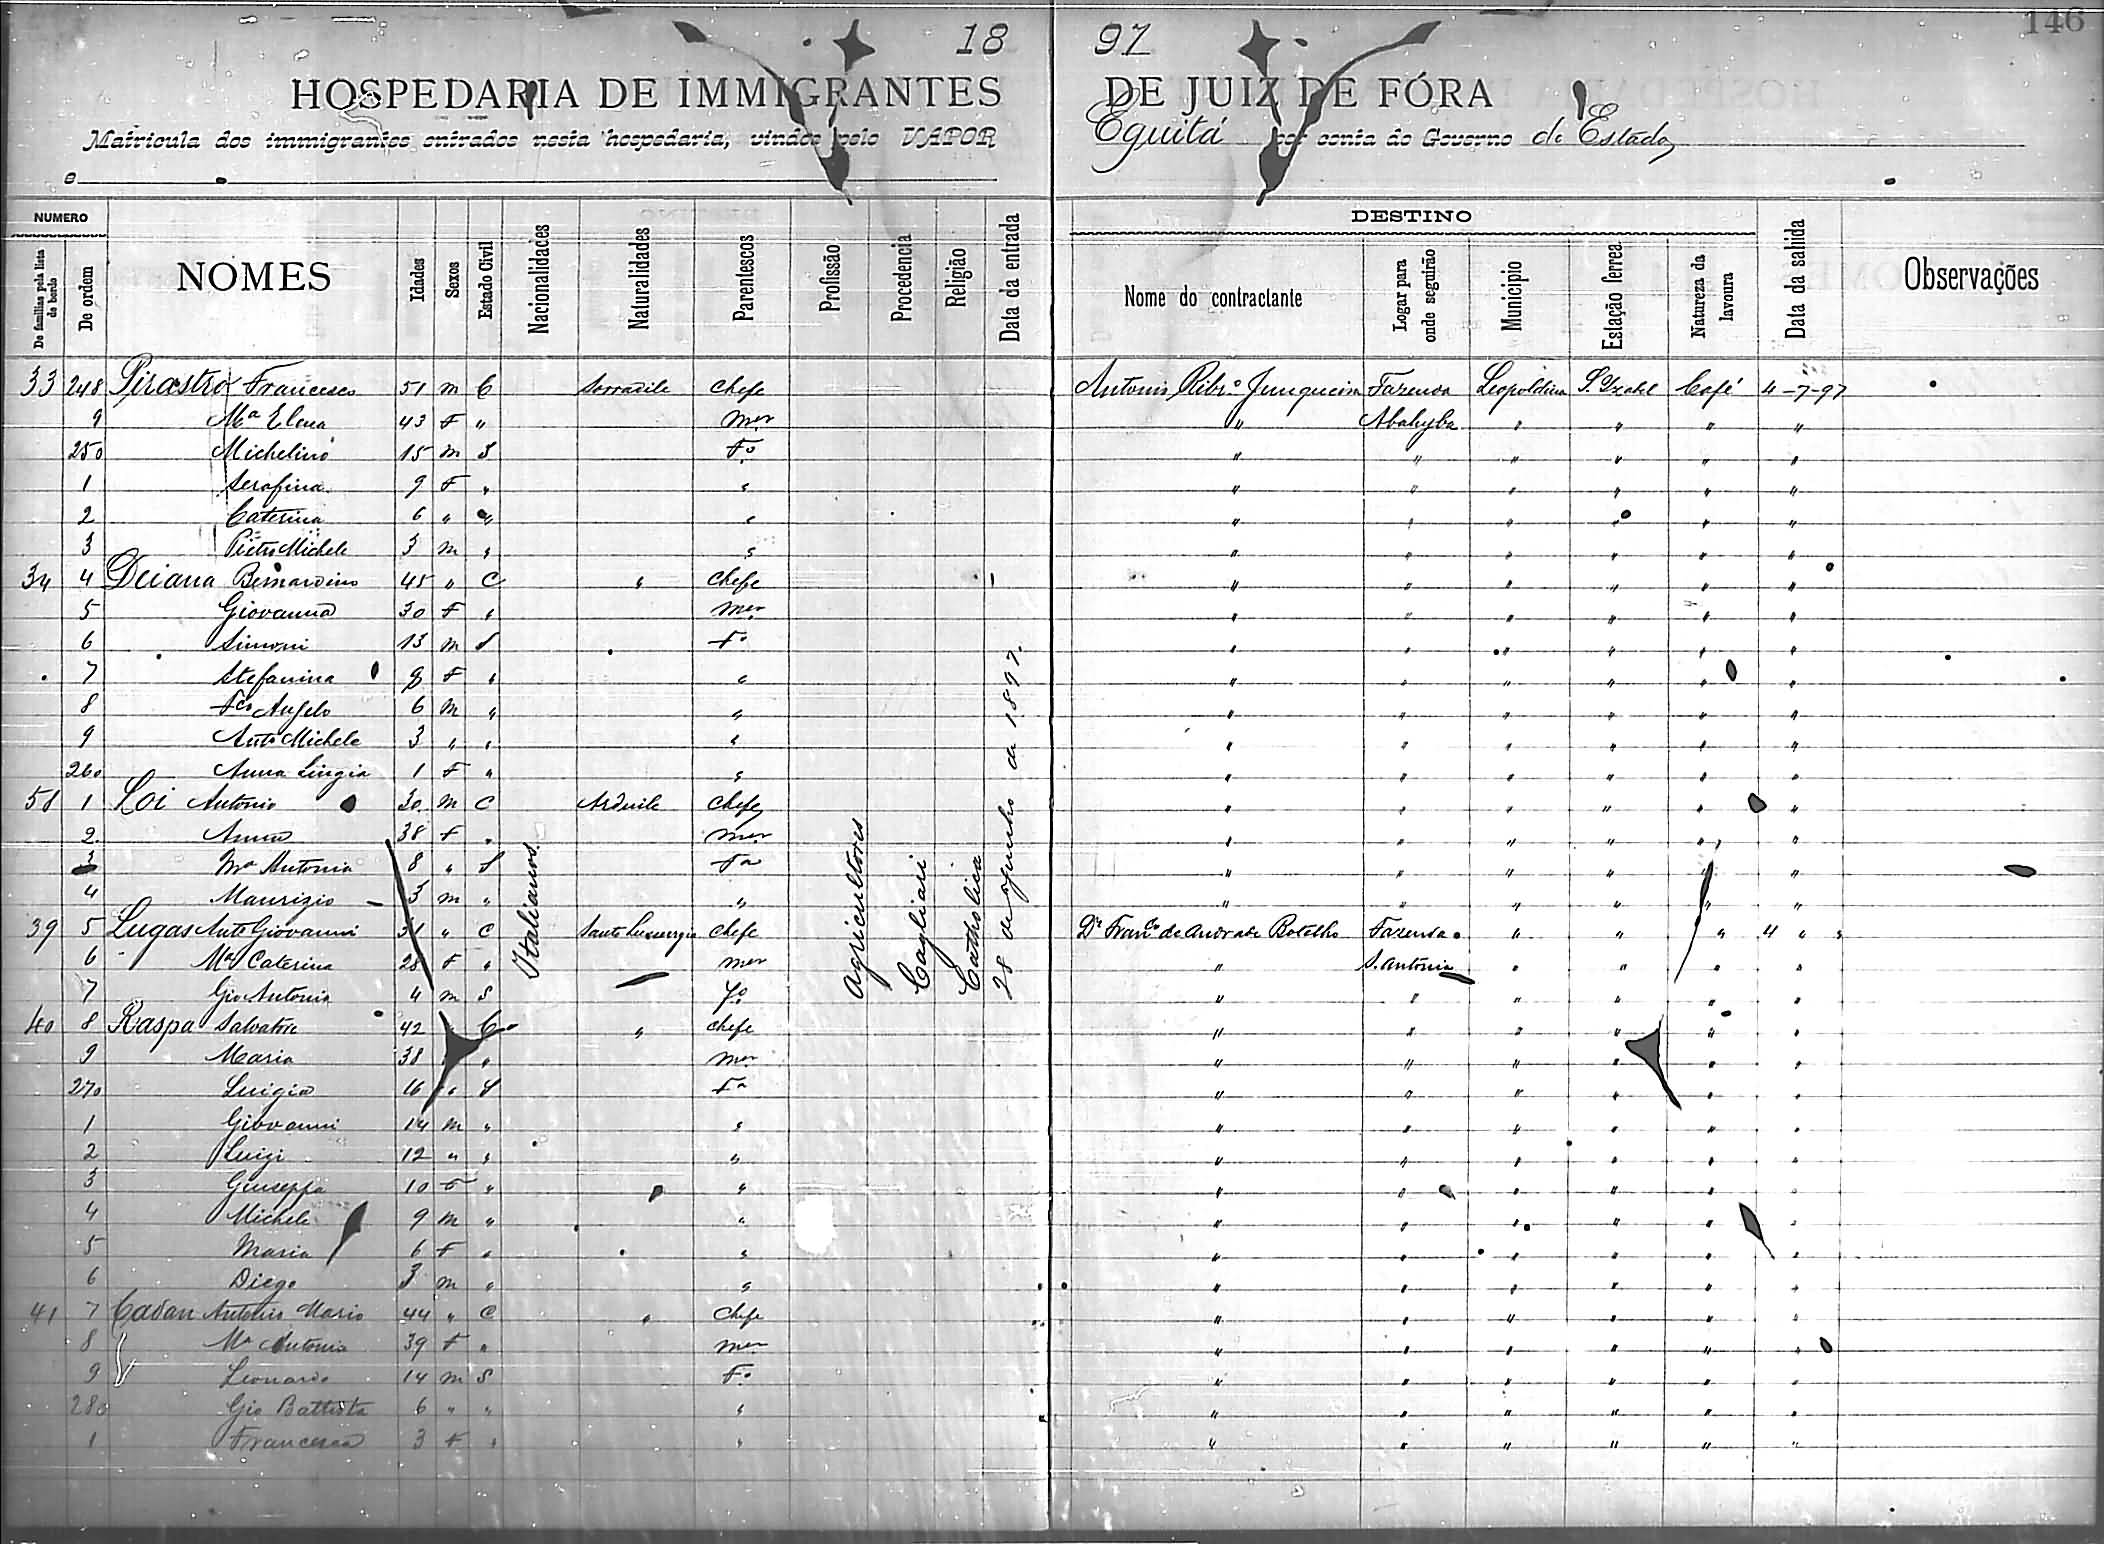 146
18 97
HOSPEDARIA DE IMMIGRANTES DE JUIZ DE FÓRA
Matricula dos immigrantes entrados nesta hospedaria, vindos pelo VAPOR Equitá por conta do Governo do Estado
e
NUMERO DESTINO
De familias pela lista de bordo De ordem NOMES Idades Sexos Estado Civil Nacionalidades Naturalidades Parentescos Profissão Procedencia Religião Data da entrada Nome do contractante Logar para onde seguirão Municipio Estação ferrea Natureza da lavoura Data da sahida Observações
33 248 Pirastro Francesco 51 m C Sorradile Chefe Antonio Ribro Junqueira Fazenda Leopoldina S. Izabel Café 4-7-97
9 Ma Elena 43 F " mer " Abahyba " " " "
250 Michelino 15 m S Fo " " " " " "
1 Serafina 9 F " " " " " " " "
2 Caterina 6 " " " " " " " " "
3 Pietro Michele 3 m " " " " " " " "
34 4 Deiana Bernardino 45 " C " Chefe " " " " " "
5 Giovanna 30 F " mer " " " " " "
6 Simoni 13 m S Fo " " " " " "
7 Stefanina 8 F " " " " " " " "
8 Fco Angelo 6 m " " " " " " " "
9 Anto Michele 3 " " " " " " " " "
260 Anna Luigia 1 F " " " " " " " "
58 1 Loi Antonio 30 m C Arduile Chefe " " " " " "
2 Anna 38 F " mer " " " " " "
3 Ma Antonia 8 " S Fa " " " " " "
4 Maurizio 3 m " " " " " " " "
39 5 Lugas Anto Giovanni 31 " C Santo Lussurgiu Chefe Dr Franco de Andrade Botelho Fazenda " " " 4 " "
6 Ma Caterina 28 F " mer " S. Antonio " " " "
7 Gio Antonio 4 m S Fo " " " " " "
40 8 Raspa Salvatore 42 " C " chefe " " " " " "
9 Maria 38 " mer " " " " " "
270 Luigia 16 " S Fa " " " " " "
1 Giovanni 14 m " " " " " " " "
2 Luigi 12 " " " " " " " " "
3 Giuseppa 10 F " " " " " " " "
4 Michele 9 m " " " " " " " "
5 Maria 6 F " " " " " " " "
6 Diego 3 m " " " " " " " "
41 7 Cadan Antonio Mario 44 " C " Chefe " " " " " "
8 Ma Antonia 39 F " mer " " " " " "
9 Leonardo 14 m S Fo " " " " " "
280 Gio Battista 6 " " " " " " " " "
1 Francesca 3 F " " " " " " " "
Italianos
Agricultores
Cagliari
Catholica
28 de Junho de 1897.